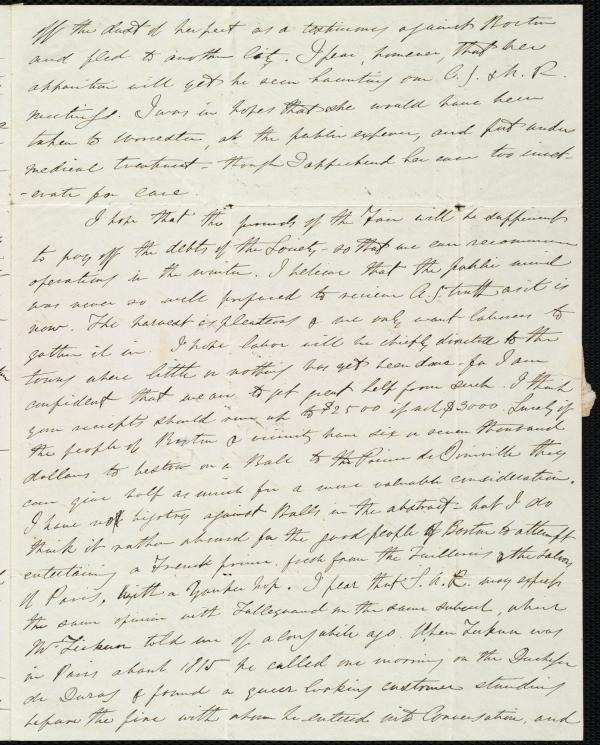 off the dust of her feet as a testimony against Boston
and fled to another City. I fear, however, that her
apparition will yet be seen haunting our A. S. & N. R.
meetings. I was in hopes that she would have been
taken to Worcester, at the public expense, and put under
medical treatment - though I apprehend her case too invet-
-erate for cure.
I hope that the proceeds of the Fair will be sufficient
to pay off the debts of the Society - so that we can recommence
operations in the winter. I believe that the public mind
was never so well prepared to receive A. S. truth as it is
now. The harvest is plenteous & we only want laborers to
gather it in. I hope labor will be chiefly directed to the
towns where little or nothing has yet been done - for I am
confident that we are to get great help from such. I think
your receipts should run up to $2500 if not $3000. Surely if
the people of Boston & vicinity have six or seven thousand
dollars to bestow on a Ball to the Prince de Joinville they
can give half as much for a more valuable consideration.
I have no bigotry against Balls in the abstract - but I do
think it rather absurd for the good people of Boston to attempt
entertaining a French prince, fresh from the Tuilleries & the salons
of Paris, with a Yankee hop. I fear that S. A. R. may express
the same opinion with Talleyrand on the same subject, which
Mr Ticknor told me of a long while ago. When Ticknor was
in Paris about 1815 he called one morning on the Duchesse
de Duras & found a queer looking customer standing
before the fire with whom he entered into conversation, and